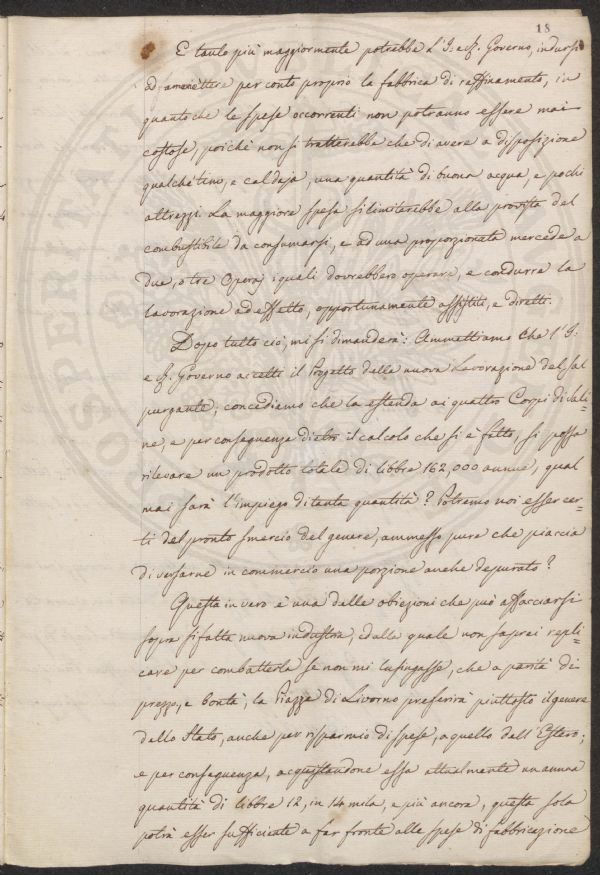 18
E tanto più maggiormente potrebbe l'I. e R. Governo, indursi
ad ammettere per conto proprio la fabbrica di raffinamento, in
quantoche le spese occorrenti non potranno essere mai
costose, poichè non si tratterebbe che di avere a disposizione
qualchè tino, e caldaja, una quantità di buona acqua, e pochi
attrezzi. La maggiore spesa si limiterebbe alla provista del
combustibile da consumarsi, e ad una proporzionata mercede a
due, o tre Operaj i quali dovrebbero operare, e condurre la
lavorazione ad effetto, opportunamente assistiti, e diretti.
Dopo tutto ciò, mi si dimanderà: Ammettiamo che l'I.
e R. Governo accetti il Progetto della nuova Lavorazione del Sal
purgante; concediamo che la estenda ai quattro Corpi di Sali=
ne, e per conseguenza dietro il calcolo che si è fatto, si possa
rilevare un prodotto totale di libbre 162,000 annue, qual
mai sarà l'impiego di tanta quantità? Potremo noi esser cer=
ti del pronto smercio del genere, ammesso pure che piaccia
di versarne in commercio una porzione anche depurato?
Questa in vero è una delle obiezioni che può affacciarsi
sopra sì fatta nuova industria, ed alla quale non saprei repli=
care per combatterla se non mi lusingasse, che a parità di
prezzo, e bontà, la Piazza di Livorno preferirà piuttosto il genere
dello Stato, anche per risparmio di spese, a quello dell'Estero;
e per conseguenza, acquistandone essa attualmente un annua
quantità di libbre 12, in 14 mila, e più ancora, questa sola
potrà esser sufficiente a far fronte alle spese di fabbricazione
PROSPERITATI